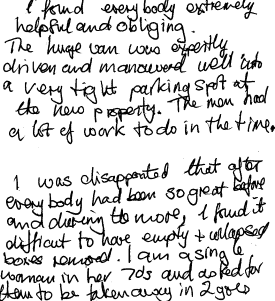 I found everybody extremely
helpful and obliging.
The huge van was expertly
driven and manouvered well into
a very tight parking spot at
the new property. The men had
a lot of work to do in the time.
I was disappointed that after
everybody had been so great before
and during the move, I found it
difficult to have empty + collapsed
boxes removed. I am a single
woman in her 70s and asked for
them to be taken away in 2 goes